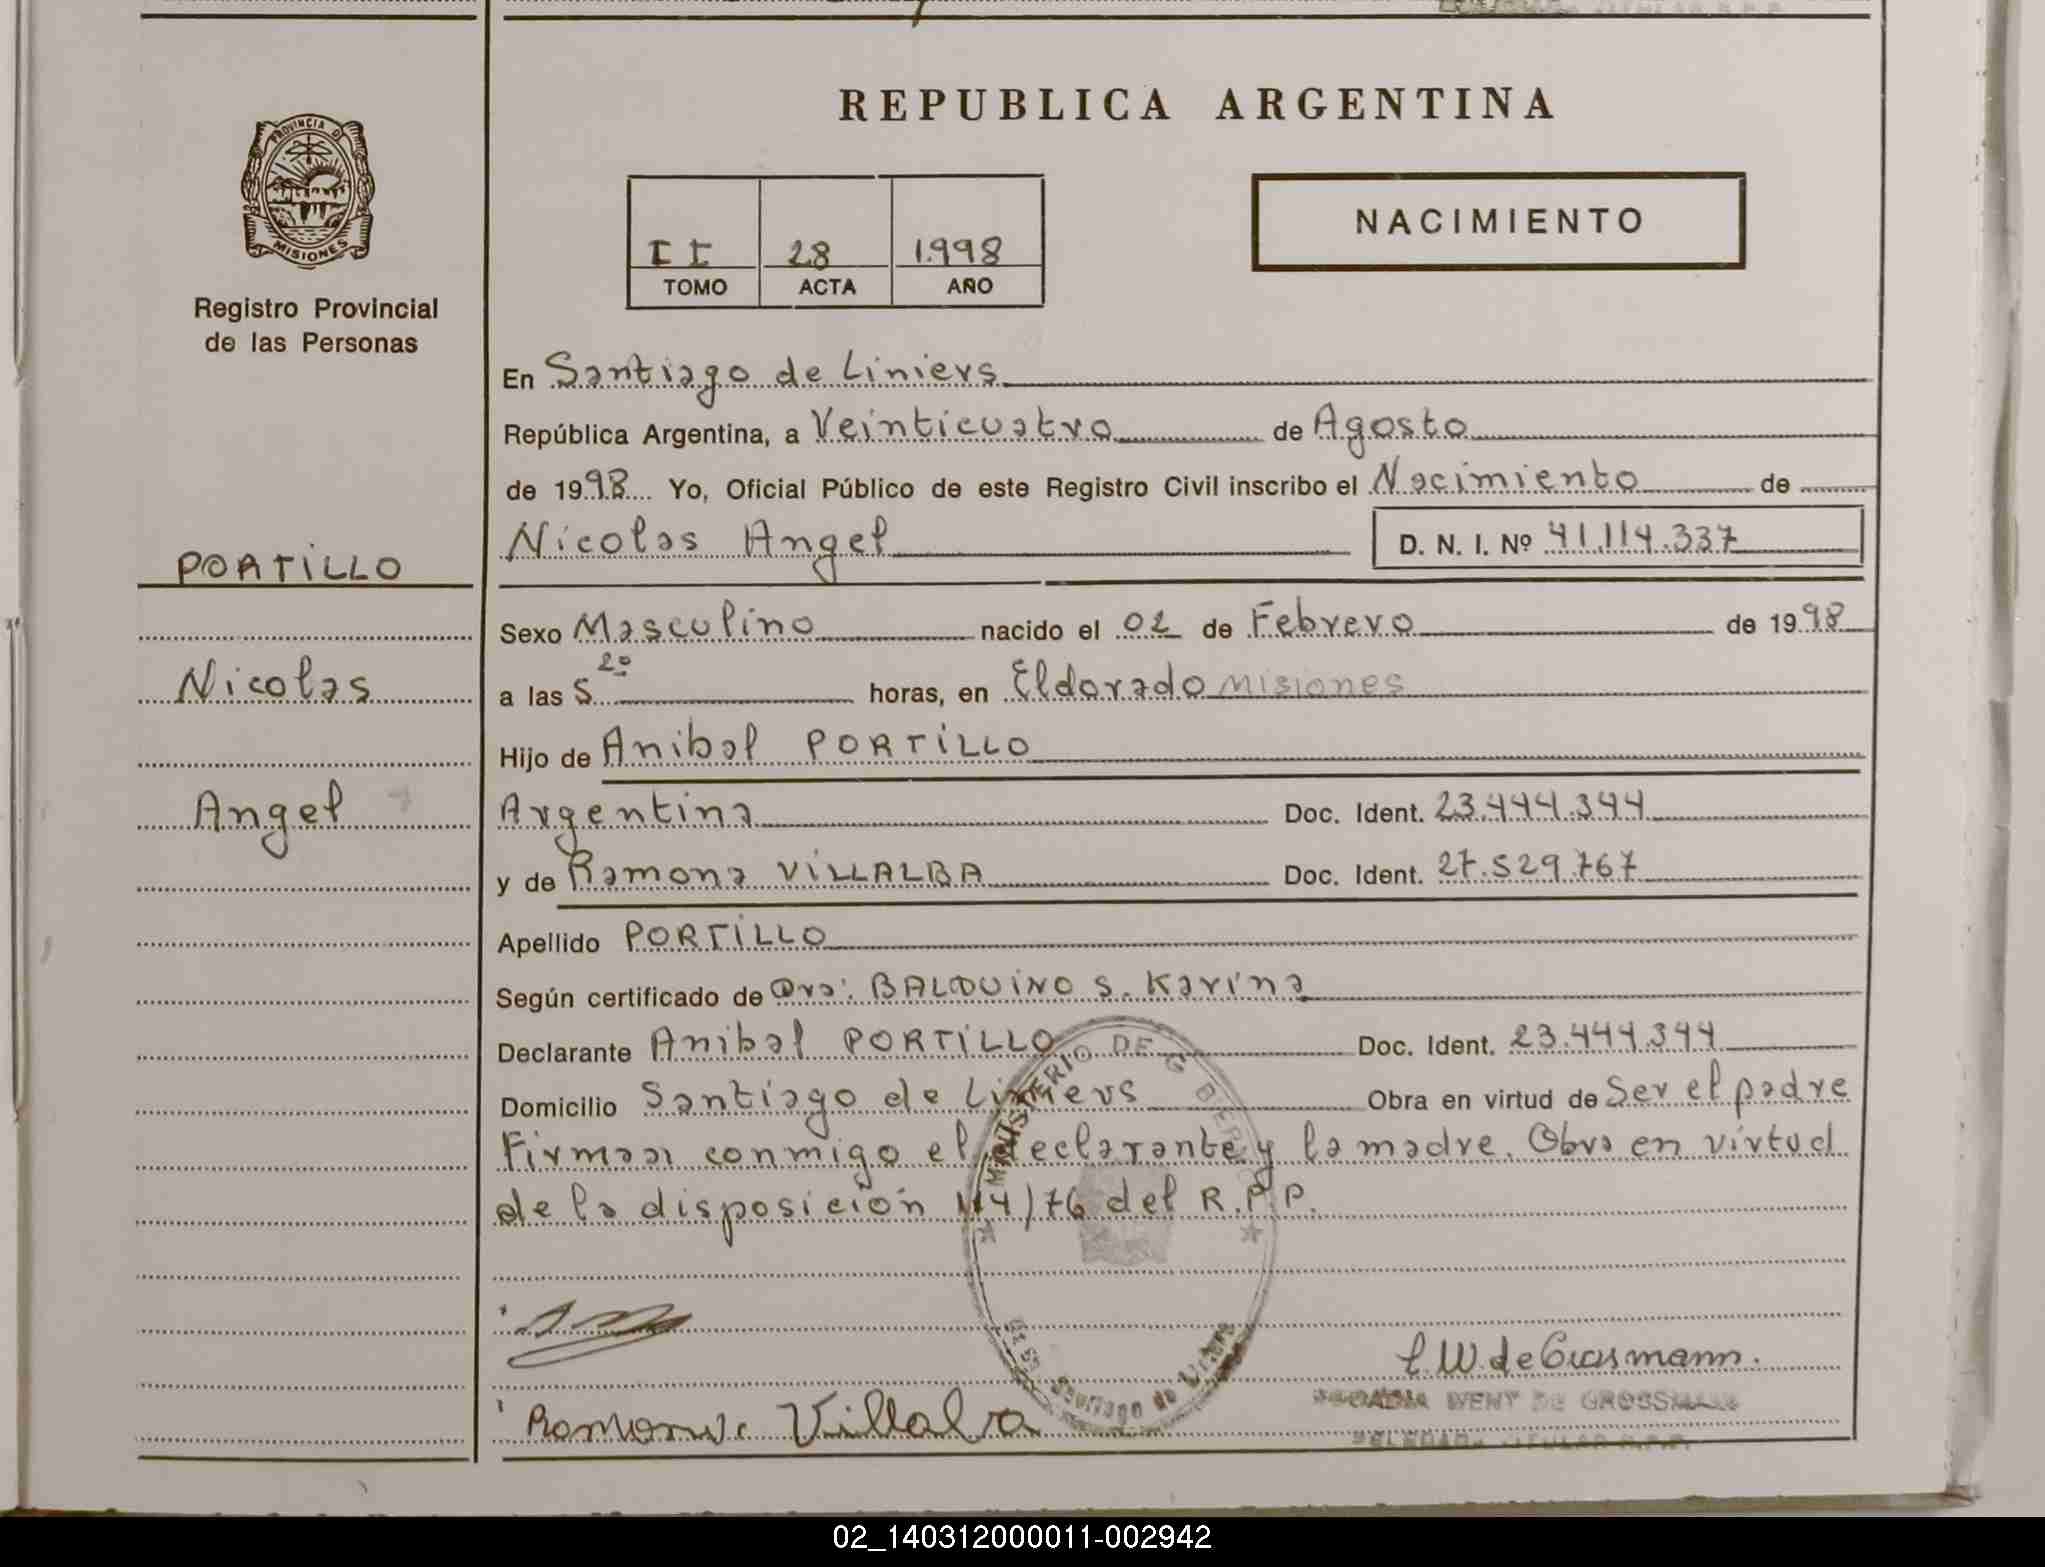 REPUBLICA ARGENTINA
PROVINCIA DE
MISIONES
Registro Provincial
de las Personas
II 28 1.998
TOMO ACTA AÑO
NACIMIENTO
En Santiago de Liniers
República Argentina, a Veinticuatro de Agosto
de 1998 Yo, Oficial Público de este Registro Civil inscribo el Nacimiento de
Nicolas Angel D. N. I. Nº 41.114.337
PORTILLO
Sexo Masculino nacido el 02 de Febrero de 1998
Nicolas
a las 5 20 horas, en Eldorado Misiones
Hijo de Anibal PORTILLO
Angel
Argentina Doc. Ident. 23.444.344
y de Ramona VILLALBA Doc. Ident. 27.529.767
Apellido PORTILLO
Según certificado de Dra: BALDUINO S. Karina
Declarante Anibal PORTILLO Doc. Ident. 23.444.344
Domicilio Santiago de Liniers Obra en virtud de Ser el padre
Firman conmigo el declarante y la madre. Obra en virtud
de la disposición 114/76 del R.P.P.
MINISTERIO DE GOBIERNO
Santiago de Liniers
Ramona Villalva
WENT DE GROSSMANN
TITULAR R.P.P.
02_140312000011-002942